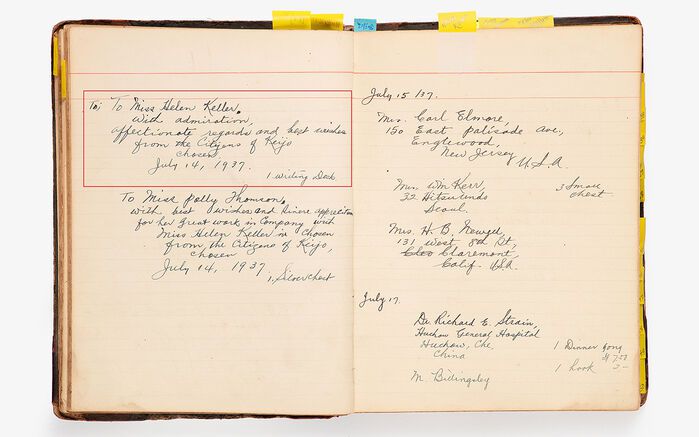 To; To Miss Helen Keller,
With admiration,
affectionate regards and best wishes
from the Citizens of Keijo
Chosen.
July 14, 1937.
1 Writing Desk
To Miss Polly Thomson,
With best wishes and Sincere appreciation
for her Great work in Company with
Miss Helen Keller in Chosen
from the Citizens of Keijo,
Chosen
July 14, 1937
1, Silver chest
July 15 137.
Mrs. Carl Elmore,
150 East Palisade Ave,
Englewood,
New Jersey
U.S.A
Mrs. Wm Kerr, 3 Small
32 chest
Seoul.
Mrs. H. B. Newell,
131 West 8th St,
Cleo Claremont,
Calif. USA.
July 17.
Dr. Richard E. Strain,
Huchow General Hospital
Huchow, Che 1 Dinner gong
China
1 3-
M.